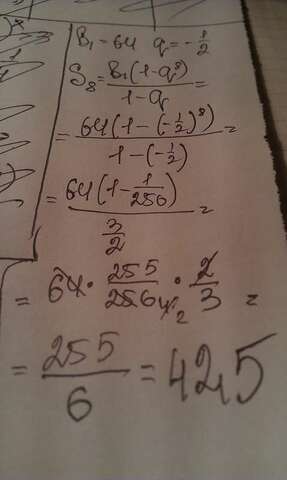 B₁ = 64 q = -1/2
S₈ = B₁(1-q⁸)/1-q =
= 64(1-(-1/2)⁸)/1-(-1/2) =
= 64(1-1/256)/3/2 =
= 64 · 255/256 4 2 · 2/3 =
= 255/6 = 42,5